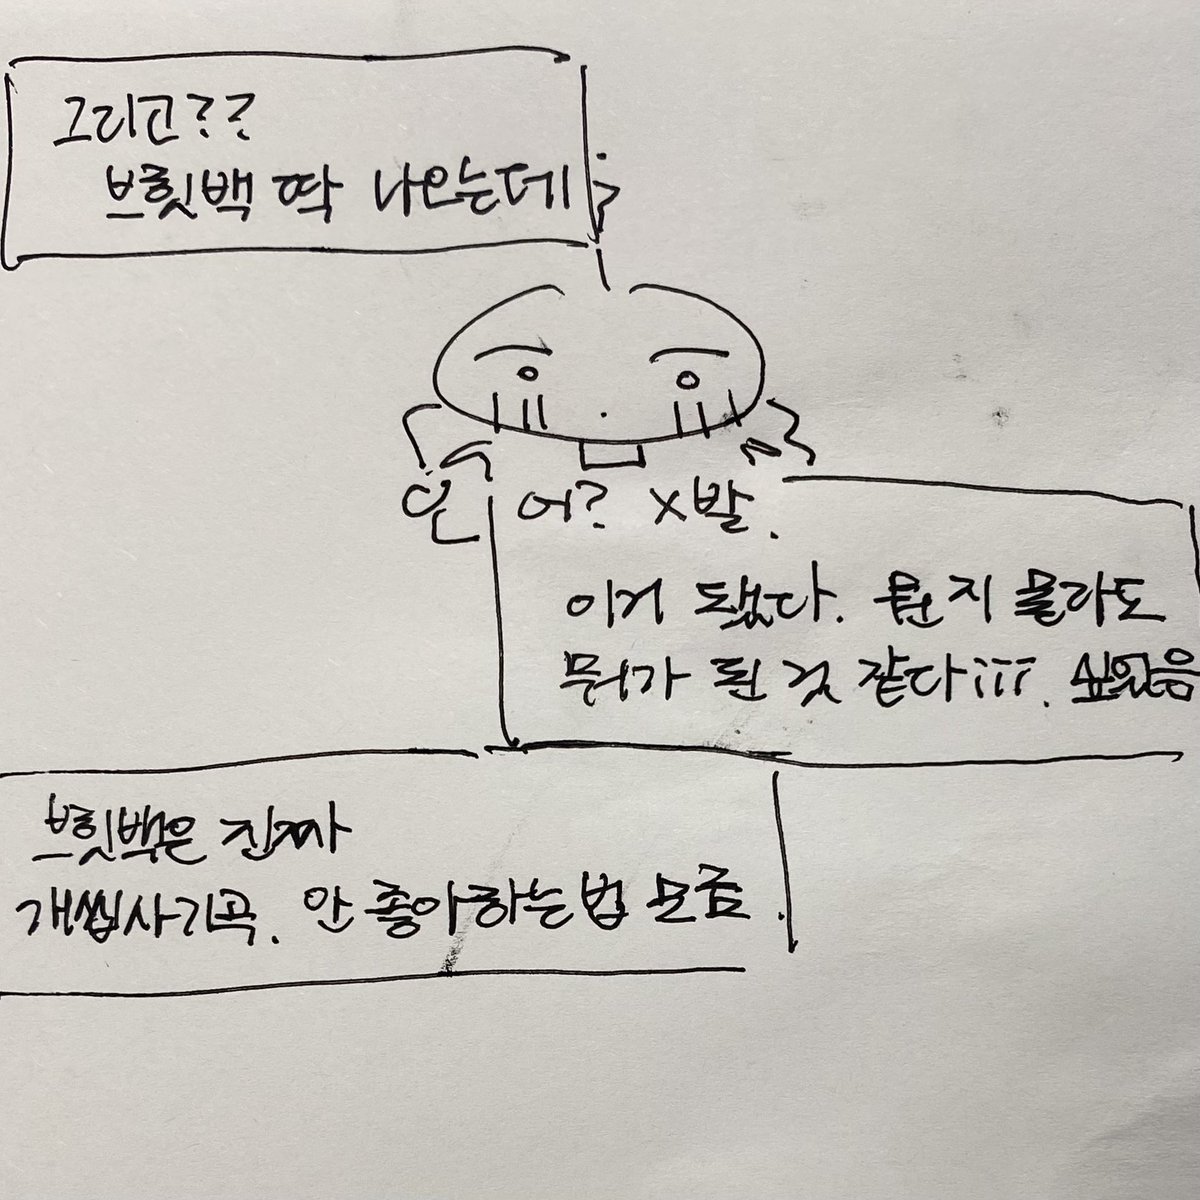 그리고??
브릿백 딱 나오는데
어? X발.
이거 됐다. 뭔지 몰라도
뭐가 된 것 같다iii. 싶었음
브릿백은 진짜
개씹사기곡. 안 좋아하는 법 모름.